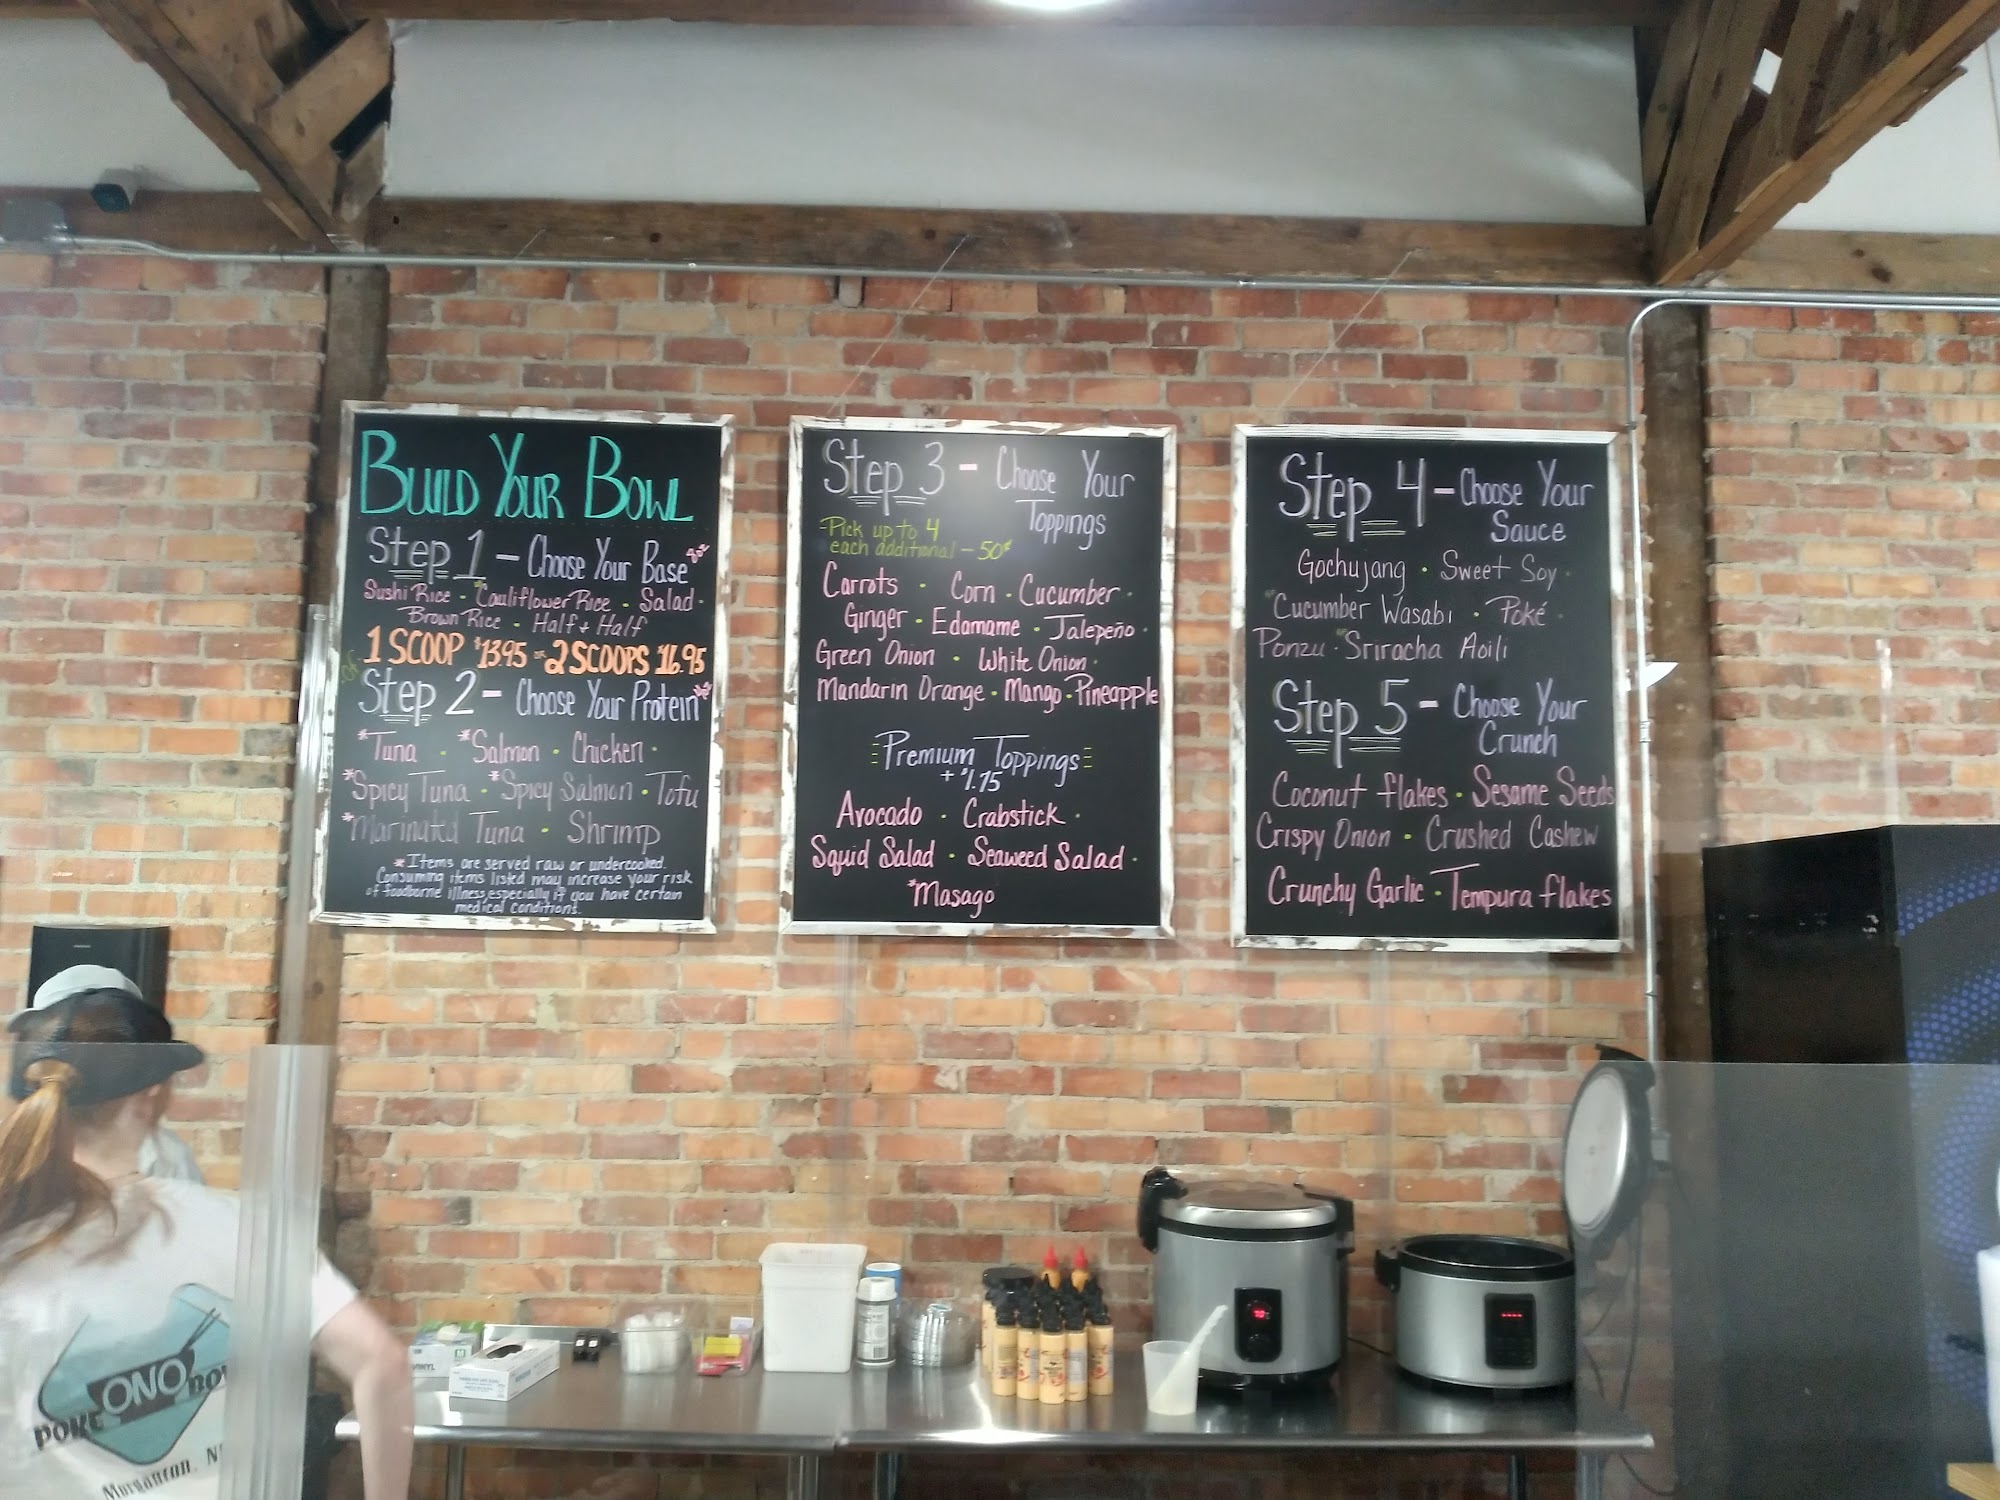 BUILD YOUR BOWL
Step 1 - Choose Your Base 8oz
Sushi Rice · Cauliflower Rice · Salad ·
Brown Rice · Half + Half
1 SCOOP $13.95 or 2 SCOOPS 16.95
Step 2 - Choose Your Protein
*Tuna · *Salmon · Chicken ·
*Spicy Tuna · *Spicy Salmon · Tofu
*Marinated Tuna · Shrimp
* Items are served raw or undercooked.
Consuming items listed may increase your risk
of foodborne illness, especially if you have certain
medical conditions.
Step 3 - Choose Your
Toppings
Pick up to 4
each additional - 50¢
Carrots · Corn · Cucumber ·
Ginger · Edamame · Jalepeño ·
Green Onion · White Onion ·
Mandarin Orange · Mango · Pineapple
Premium Toppings
+ $1.75
Avocado · Crabstick ·
Squid Salad · Seaweed Salad ·
*Masago
Step 4 - Choose Your
Sauce
Gochujang · Sweet Soy ·
Cucumber Wasabi · Poké ·
Ponzu · Sriracha Aoili
Step 5 - Choose Your
Crunch
Coconut flakes · Sesame Seeds
Crispy Onion · Crushed Cashew
Crunchy Garlic · Tempura flakes
POKE ONO BOWL
Morganton, N